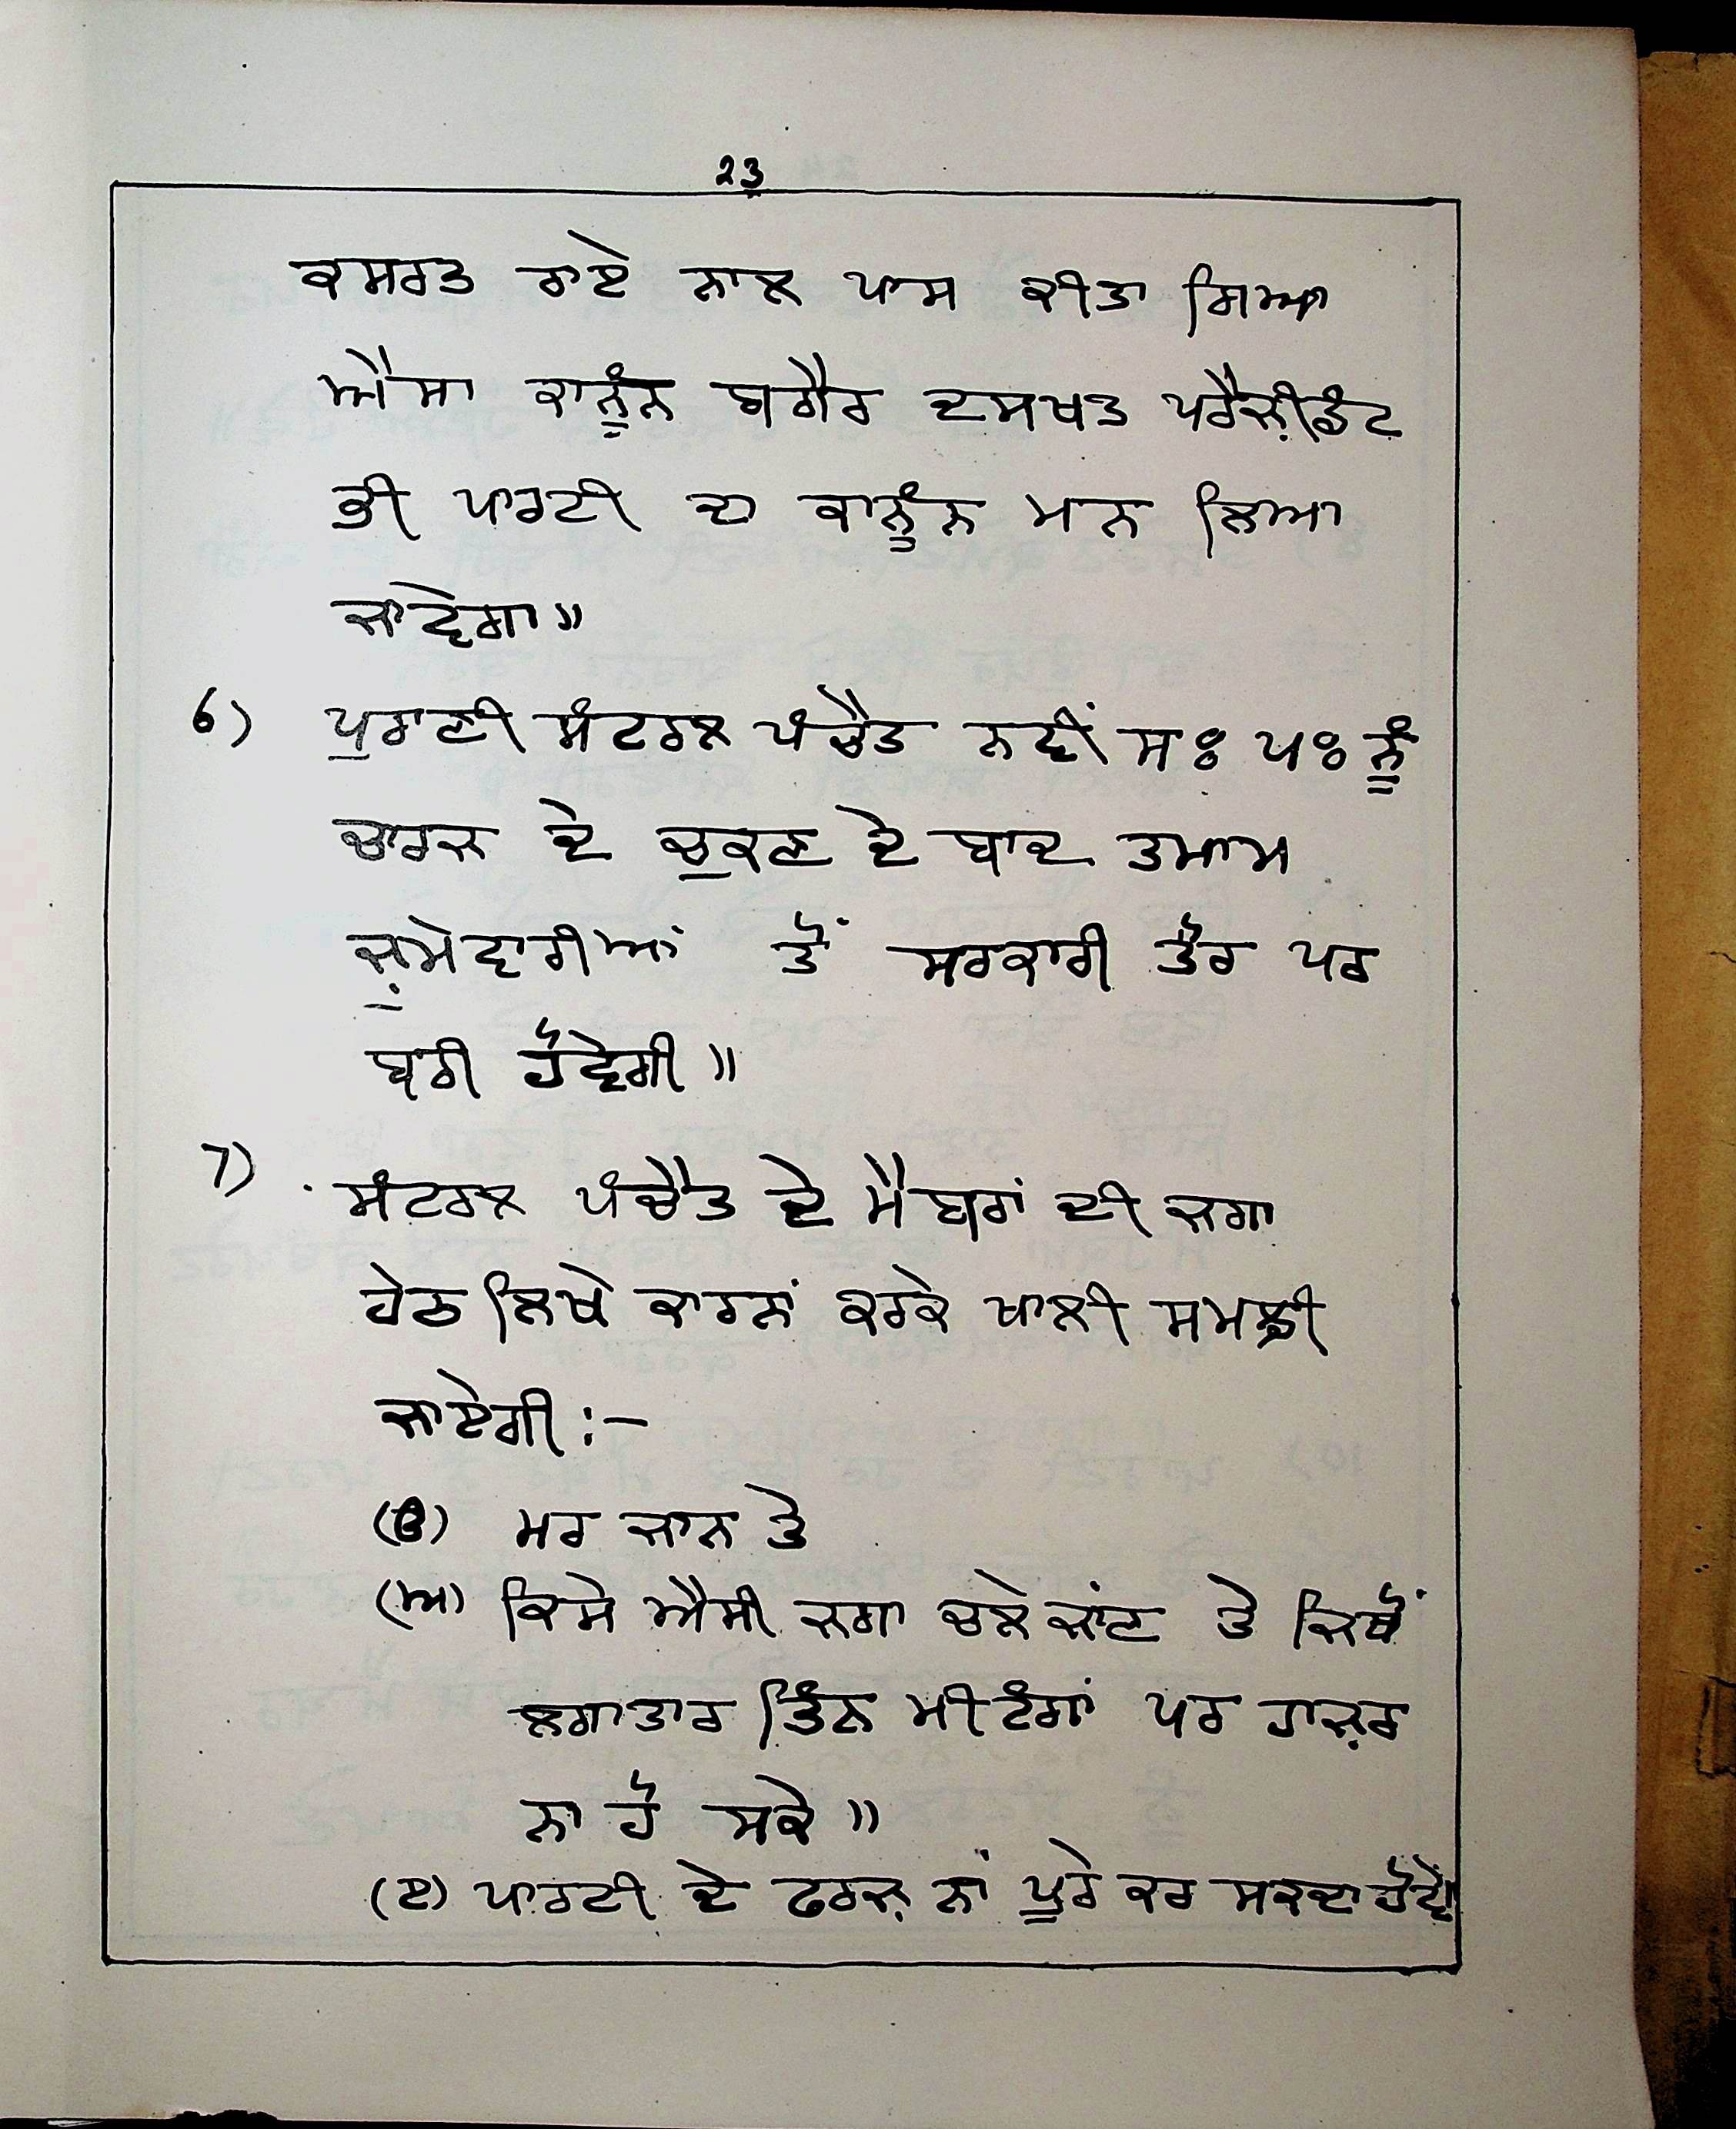 23
ਕਸਰਤ ਰਾਏ ਨਾਲ ਪਾਸ ਕੀਤਾ ਗਿਆ
ਐਸਾ ਕਾਨੂੰਨ ਬਗੈਰ ਦਸਖਤ ਪਰੈਜ਼ੀਡੰਟ
ਭੀ ਪਾਰਟੀ ਦਾ ਕਾਨੂੰਨ ਮਾਨ ਲਿਆ
ਜਾਵੇਗਾ॥
6) ਪੁਰਾਣੀ ਸੰਟਰਲ ਪੰਚੈਤ ਨਵੀਂ ਸ॰ ਪ॰ ਨੂੰ
ਚਾਰਜ ਦੇ ਚੁਕਣ ਦੇ ਬਾਦ ਤਮਾਮ
ਜ਼ੁਮੇਵਾਰੀਆਂ ਤੋਂ ਸਰਕਾਰੀ ਤੌਰ ਪਰ
ਬਰੀ ਹੋਵੇਗੀ॥
7) ਸੰਟਰਲ ਪੰਚੈਤ ਦੇ ਮੈਂਬਰਾਂ ਦੀ ਜਗਾ
ਹੇਠ ਲਿਖੇ ਕਾਰਨਾਂ ਕਰਕੇ ਖਾਲੀ ਸਮਝੀ
ਜਾਏਗੀ:—
(ੳ) ਮਰ ਜਾਨ ਤੇ
(ਅ) ਕਿਸੇ ਐਸੀ ਜਗਾ ਚਲੇ ਜਾਂਣ ਤੇ ਜਿਥੋਂ
ਲਗਾਤਾਰ ਤਿੰਨ ਮੀਟੰਗਾਂ ਪਰ ਹਾਜ਼ਰ
ਨਾ ਹੋ ਸਕੇ॥
(ੲ) ਪਾਰਟੀ ਦੇ ਫਰਜ਼ ਨਾਂ ਪੂਰੇ ਕਰ ਸਕਦਾ ਹੋਵੇ॥